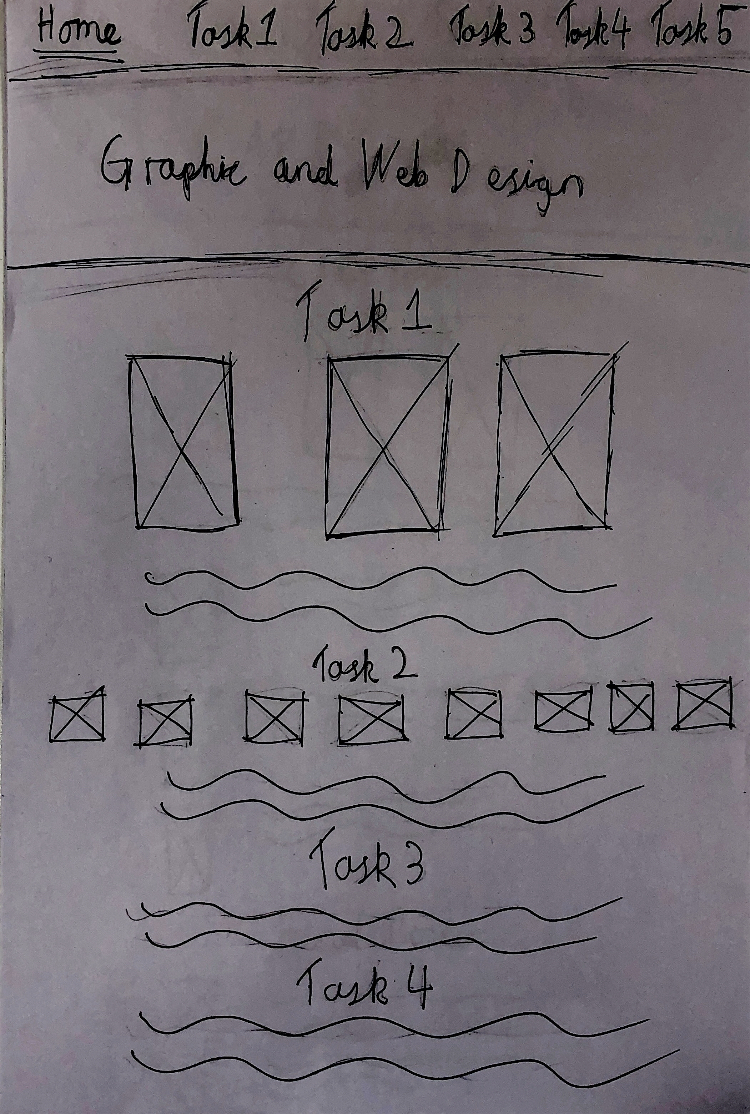 Home Task 1 Task 2 Task 3 Task 4 Task 5
Graphic and Web Design
Task 1
Task 2
Task 3
Task 4